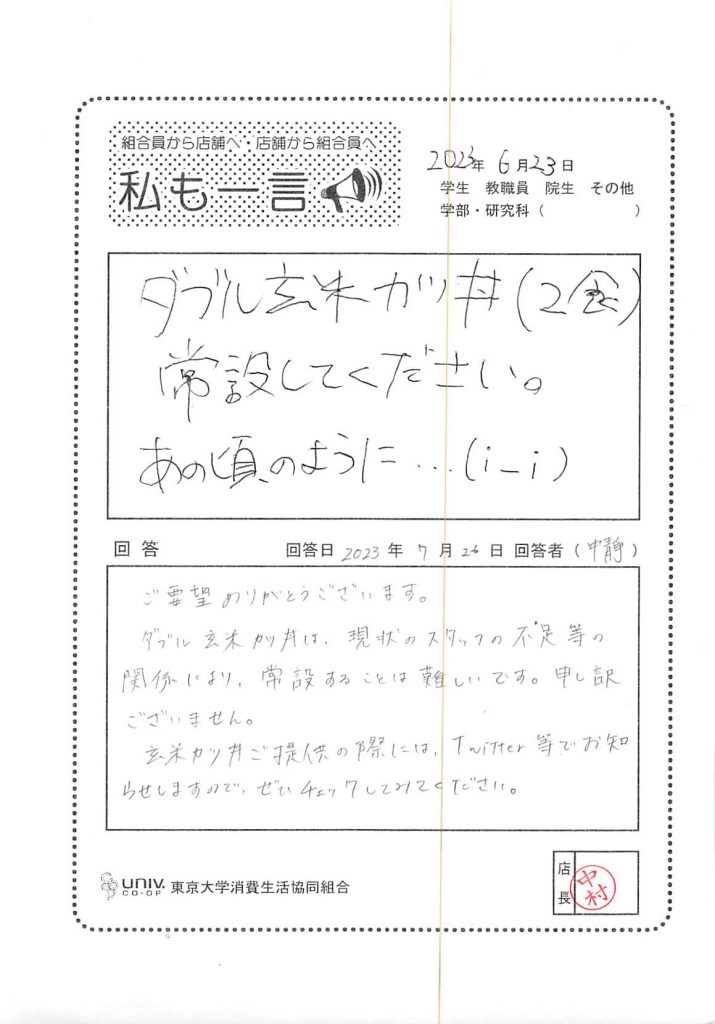 組合員から店舗へ・店舗から組合員へ
私も一言
2023年 6月23日
学生 教職員 院生 その他
学部・研究科( )
ダブル玄米カツ丼(2食)
常設してください。
あの頃のように…(i_i)
回答 回答日 2023年 7月26日 回答者(中静)
ご要望ありがとうございます。
ダブル玄米カツ丼は、現状のスタッフの不足等の
関係により、常設することは難しいです。申し訳
ございません。
玄米カツ丼ご提供の際には、Twitter等でお知
らせしますので、ぜひチェックしてみてください。
UNIV. CO-OP 東京大学消費生活協同組合
店長 中村